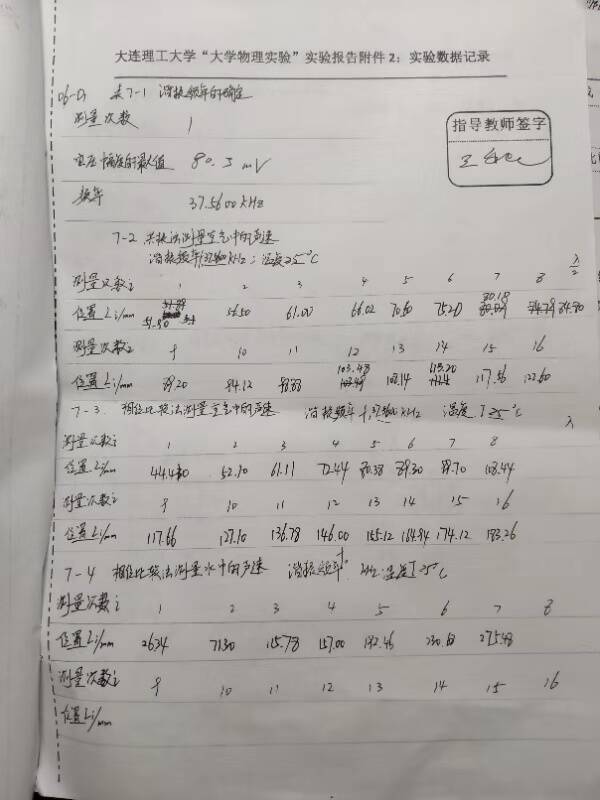 大连理工大学“大学物理实验”实验报告附件2：实验数据记录
表7-1 谐振频率的确定
指导教师签字
测量次数 1
幅度的最大值 80.3 mV
频率 37.5600 kHz
7-2 共振法测量空气中的声速
谐振频率 kHz; 温度25°C
测量次数i 1 2 3 4 5 6 7 8
位置Li/mm 51.80 56.50 61.00 66.02 70.60 75.20 80.18 84.80
测量次数i 9 10 11 12 13 14 15 16
位置Li/mm 89.20 94.12 98.88 103.48 108.14 113.20 117.56 122.60
7-3. 相位比较法测量空气中的声速 谐振频率f kHz 温度T 25°C λ
测量次数i 1 2 3 4 5 6 7 8
位置Li/mm 52.10 61.11 72.44 80.38 89.30 98.70 108.44
测量次数i 9 10 11 12 13 14 15 16
位置Li/mm 117.66 127.10 136.78 146.00 155.12 164.84 174.12 183.26
7-4 相位比较法测量水中的声速 谐振频率f kHz 温度T 25°C
测量次数i 1 2 3 4 5 6 7 8
位置Li/mm 26.34 71.30 115.78 157.00 192.46 275.48
测量次数i 9 10 11 12 13 14 15 16
位置Li/mm